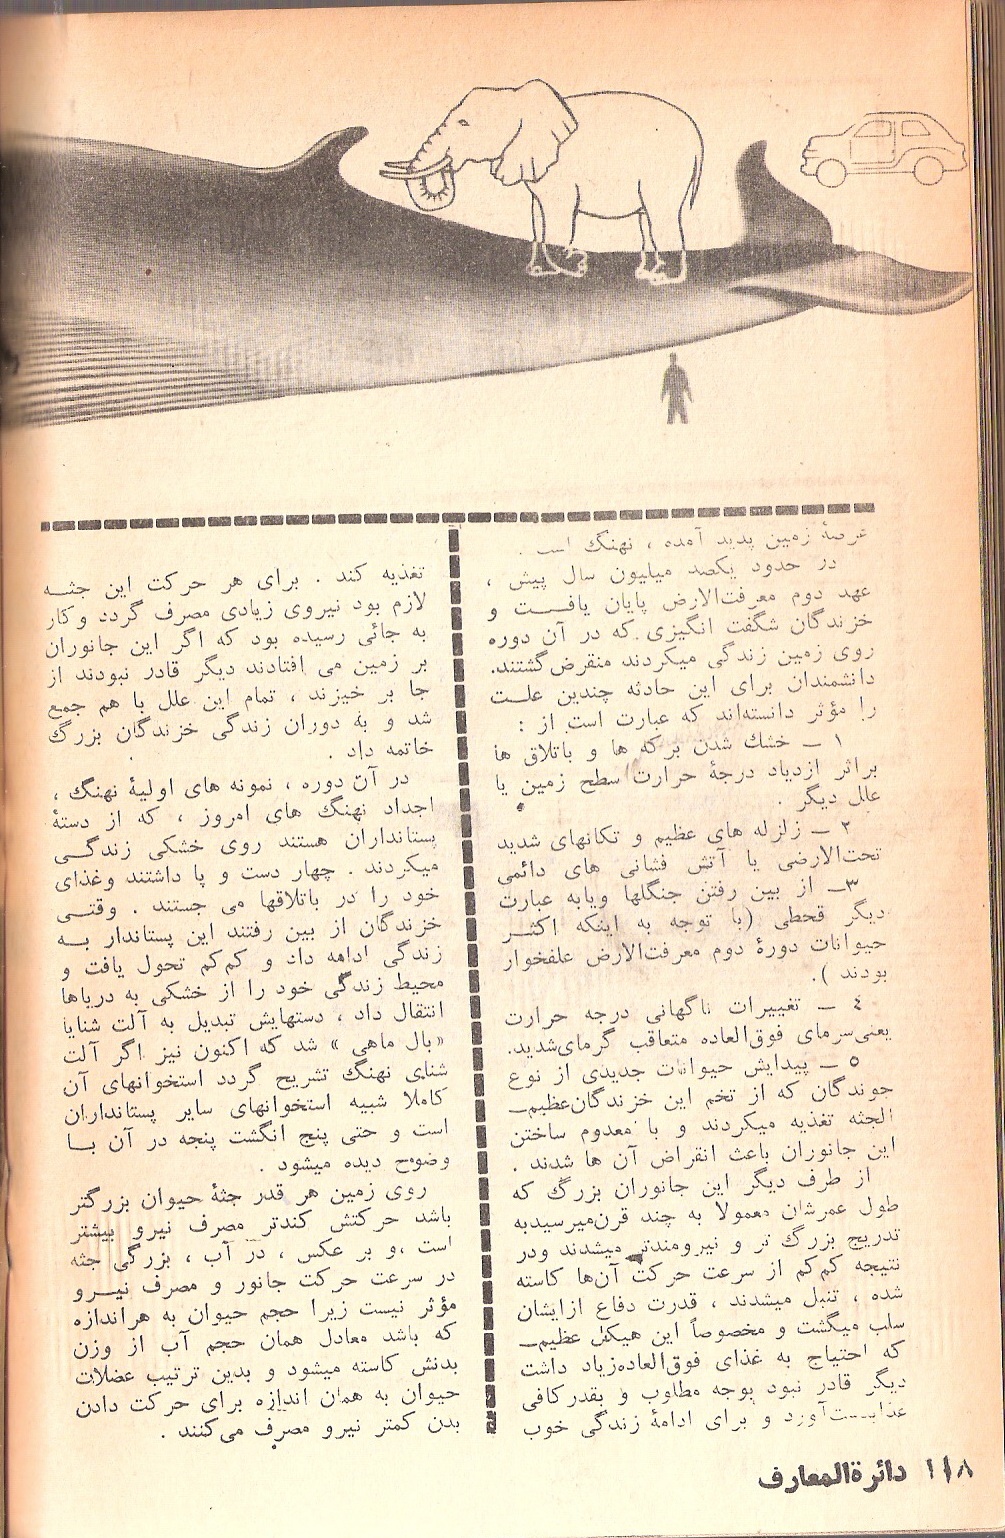 عرصهٔ زمین پدید آمده ، نهنگ است .
در حدود یکصد میلیون سال پیش ،
عهد دوم معرفت‌الارض پایان یافــت و
خزندگان شگفت انگیزی که در آن دوره
روی زمین زندگی میکردند منقرض گشتند.
دانشمندان برای این حادثه چندین علــت
را مؤثر دانسته‌اند که عبارت است از :
۱ ـ خشك شدن برکه ها و باتلاق ها
براثر ازدیاد درجهٔ حرارت سطح زمین یا
علل دیگر .
۲ ـ زلزله های عظیم و تکانهای شدید
تحت‌الارضی یا آتش فشانی های دائمی
۳ـ از بین رفتن جنگلها ویابه عبارت
دیگر قحطی (با توجه به اینکه اکثــر
حیوانات دورهٔ دوم معرفت‌الارض علفخوار
بودند ).
٤ ـ تغییرات ناگهانی درجه حرارت
یعنی‌سرمای فوق‌العاده متعاقب گرمای‌شدید.
٥ ـ پیدایش حیوانات جدیدی از نوع
جوندگان که از تخم این خزندگان‌عظیم‌ـ
الجثه تغذیه میکردند و با معدوم ساختن
این جانوران باعث انقراض آن ها شدند .
از طرف دیگر این جانوران بزرگ که
طول عمرشان معمولا به چند قرن‌میرسیدبه
تدریج بزرگ تر و نیرومندتر میشدند ودر
نتیجه کم‌کم از سرعت حرکت آن‌ها کاسته
شده ، تنبل میشدند ، قدرت دفاع ازایشان
سلب میگشت و مخصوصاً این هیکل عظیم‌ـ
که احتیاج به غذای فوق‌العاده‌زیاد داشت
دیگر قادر نبود بوجه مطلوب و بقدرکافی
غذابدست‌آورد و برای ادامهٔ زندگی خوب
تغذیه کند . برای هر حرکت این جثــه
لازم بود نیروی زیادی مصرف گردد وکار
به جائی رسیده بود که اگر این جانوران
بر زمین می افتادند دیگر قادر نبودند از
جا بر خیزند ، تمام این علل با هم جمع
شد و به دوران زندگی خزندگان بزرگ
خاتمه داد .
در آن دوره ، نمونه های اولیهٔ نهنگ ،
اجداد نهنگ های امروز ، که از دستهٔ
پستانداران هستند روی خشکی زندگــی
میکردند . چهار دست و پا داشتند وغذای
خود را در باتلاقها می جستند . وقتــی
خزندگان از بین رفتند این پستاندار بــه
زندگی ادامه داد و کم‌کم تحول یافت و
محیط زندگی خود را از خشکی به دریاها
انتقال داد ، دستهایش تبدیل به آلت شنایا
«بال ماهی » شد که اکنون نیز اگر آلت
شنای نهنگ تشریح گردد استخوانهای آن
کاملا شبیه استخوانهای سایر پستانداران
است و حتی پنج انگشت پنجه در آن بــا
وضوح دیده میشود .
روی زمین هر قدر جثهٔ حیوان بزرگتر
باشد حرکتش کندتر مصرف نیرو بیشتر
است ،و بر عکس ، در آب ، بزرگی جثه
در سرعت حرکت جانور و مصرف نیــرو
مؤثر نیست زیرا حجم حیوان به هراندازه
که باشد معادل همان حجم آب از وزن
بدنش کاسته میشود و بدین ترتیب عضلات
حیوان به همان اندازه برای حرکت دادن
بدن کمتر نیرو مصرف می‌کنند .
۱۱۸ دائرةالمعارف